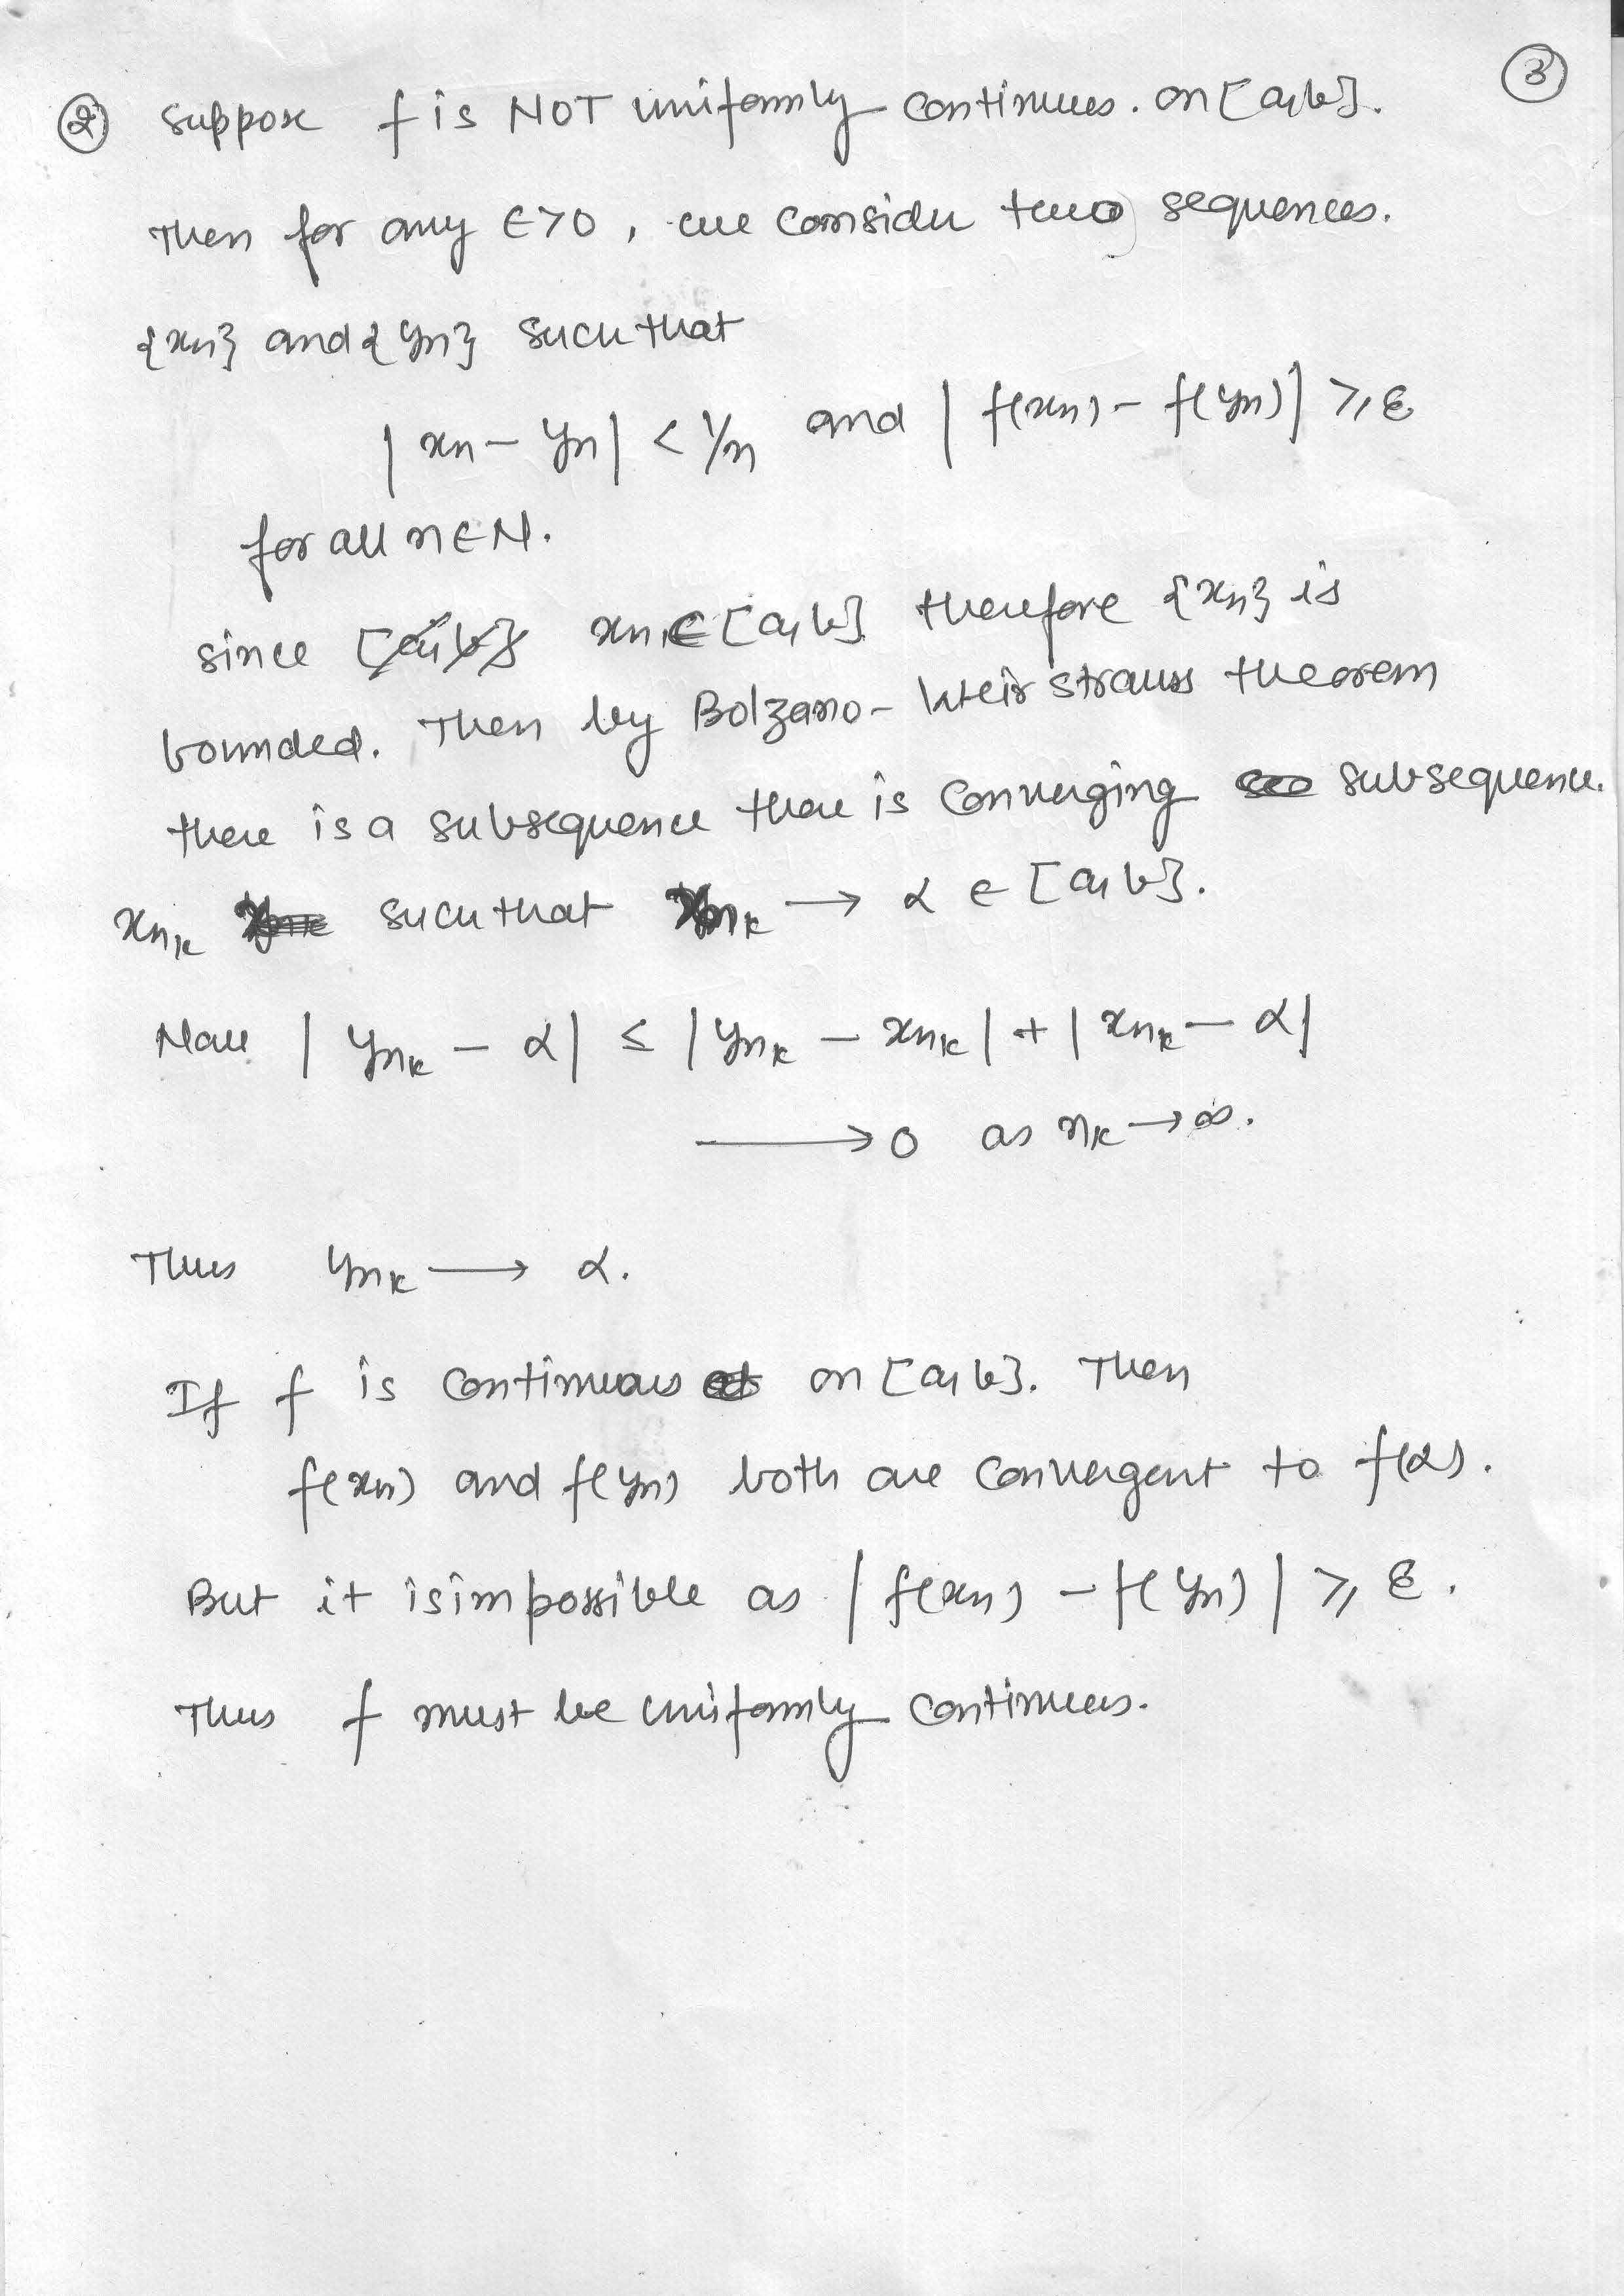 ③
② Suppose f is NOT uniformly continuous. on [a,b].
Then for any ε>0, we consider two sequences.
{xn} and {yn} such that
|xn - yn| < 1/n and |f(xn) - f(yn)| ≥ ε
for all n∈N.
since [a,b] xn ∈ [a,b] therefore {xn} is
bounded. Then by Bolzano-Weirstrauss theorem
there is a subsequence there is converging subsequence.
xnk such that xnk → α ∈ [a,b].
Now |ynk - α| ≤ |ynk - xnk| + |xnk - α|
→ 0 as nk → ∞.
Thus ynk → α.
If f is continuous on [a,b]. Then
f(xn) and f(yn) both are convergent to f(α).
But it is impossible as |f(xn) - f(yn)| ≥ ε.
Thus f must be uniformly continuous.